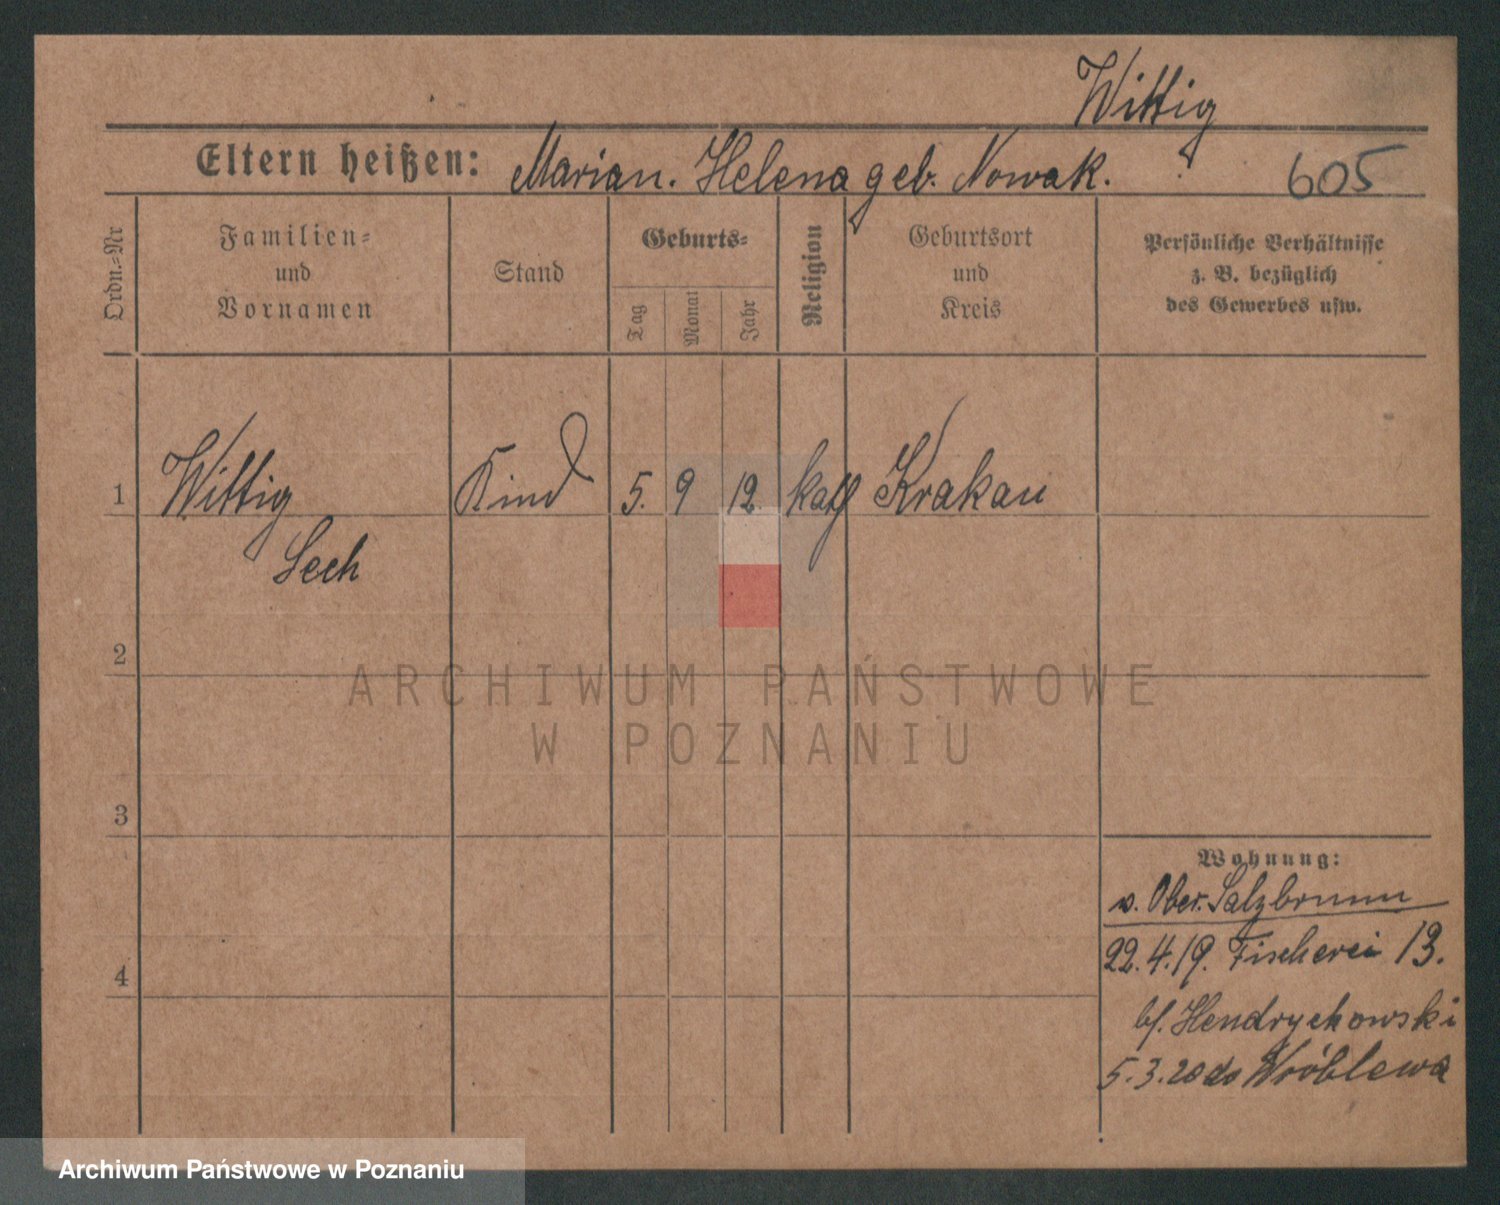 Wittig
Eltern heißen: Marian. Helena geb. Nowak. 605
Ordn.-Nr
Familien-
und
Vornamen
Stand
Geburts-
Tag
Monat
Jahr
Religion
Geburtsort
und
Kreis
Persönliche Verhältnisse
z. B. bezüglich
des Gewerbes usw.
1 Wittig Kind 5. 9 12. kath Krakau
Lech
2
ARCHIWUM PAŃSTWOWE
W POZNANIU
3
Wohnung:
v. Ober. Salzbrunn
22.4.19. Fischerei 13.
4
bf. Hendrychowski
5.3.20 do Wróblewa
Archiwum Państwowe w Poznaniu